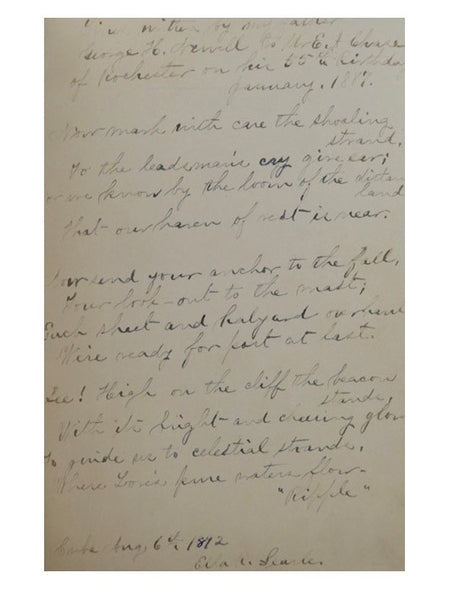 written by my father
George H. to Mr E. A. Chase
of Rochester on his 55th Birthday
January, 1887.
Now mark with care the shoaling
strand,
To the leadsman's cry give ear;
or we know by the loom of the distan
land
That our haven of rest is near.
Now send your anchor to the fall,
Your look-out to the mast;
Each sheet and halyard overhaul
We're ready for port at last.
See! High on the cliff the beacon
stands,
With it's bright and cheering glow
To guide us to celestial strands,
Where Love's pure waters flow-
"Ripple"
Aug 6th, 1892
Ella Searle.